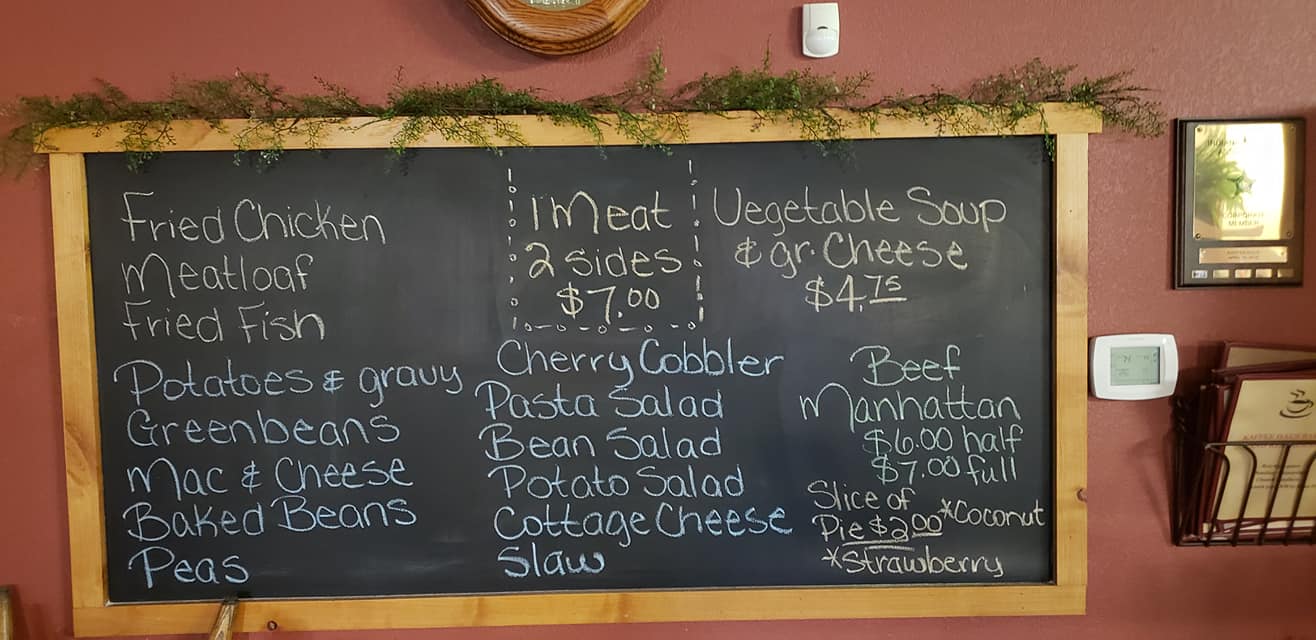 Fried Chicken
Meatloaf
Fried Fish
Potatoes & gravy
Greenbeans
Mac & Cheese
Baked Beans
Peas
1 Meat
2 sides
$7.00
Cherry Cobbler
Pasta Salad
Bean Salad
Potato Salad
Cottage Cheese
Slaw
Vegetable Soup
& gr. Cheese
$4.75
Beef
Manhattan
$6.00 half
$7.00 full
Slice of
Pie $2.00 *Coconut
*Strawberry
MEMBER